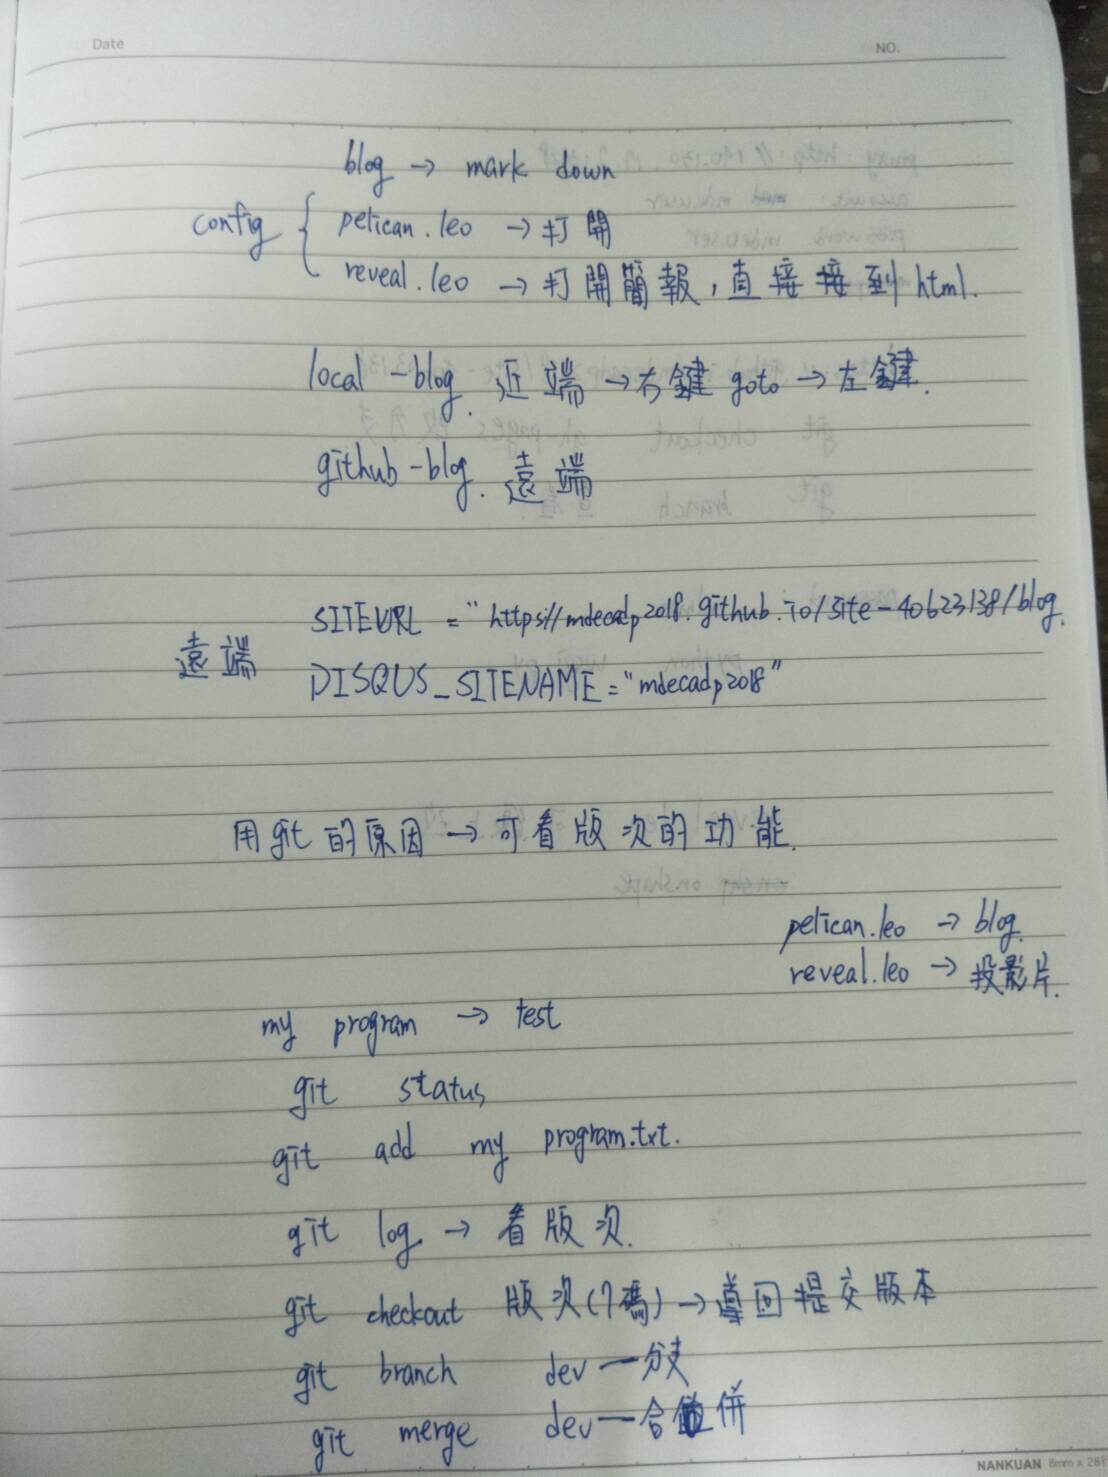 Date NO.
blog → mark down
config { pelican.leo → 打開
reveal.leo → 打開簡報,直接接到html.
local-blog. 近端→右鍵 goto → 左鍵.
github-blog. 遠端
SITEURL = "https://mdecadp2018.github.io/site-40623138/blog.
遠端
DISQUS_SITENAME = "mdecadp2018"
用git的原因 → 可看版次的功能.
pelican.leo → blog.
reveal.leo → 投影片.
my program → test
git status
git add my program.txt.
git log → 看版次.
git checkout 版次(7碼) → 導回提交版本
git branch dev — 分支
git merge dev — 合併
NANKUAN 8mm x 28